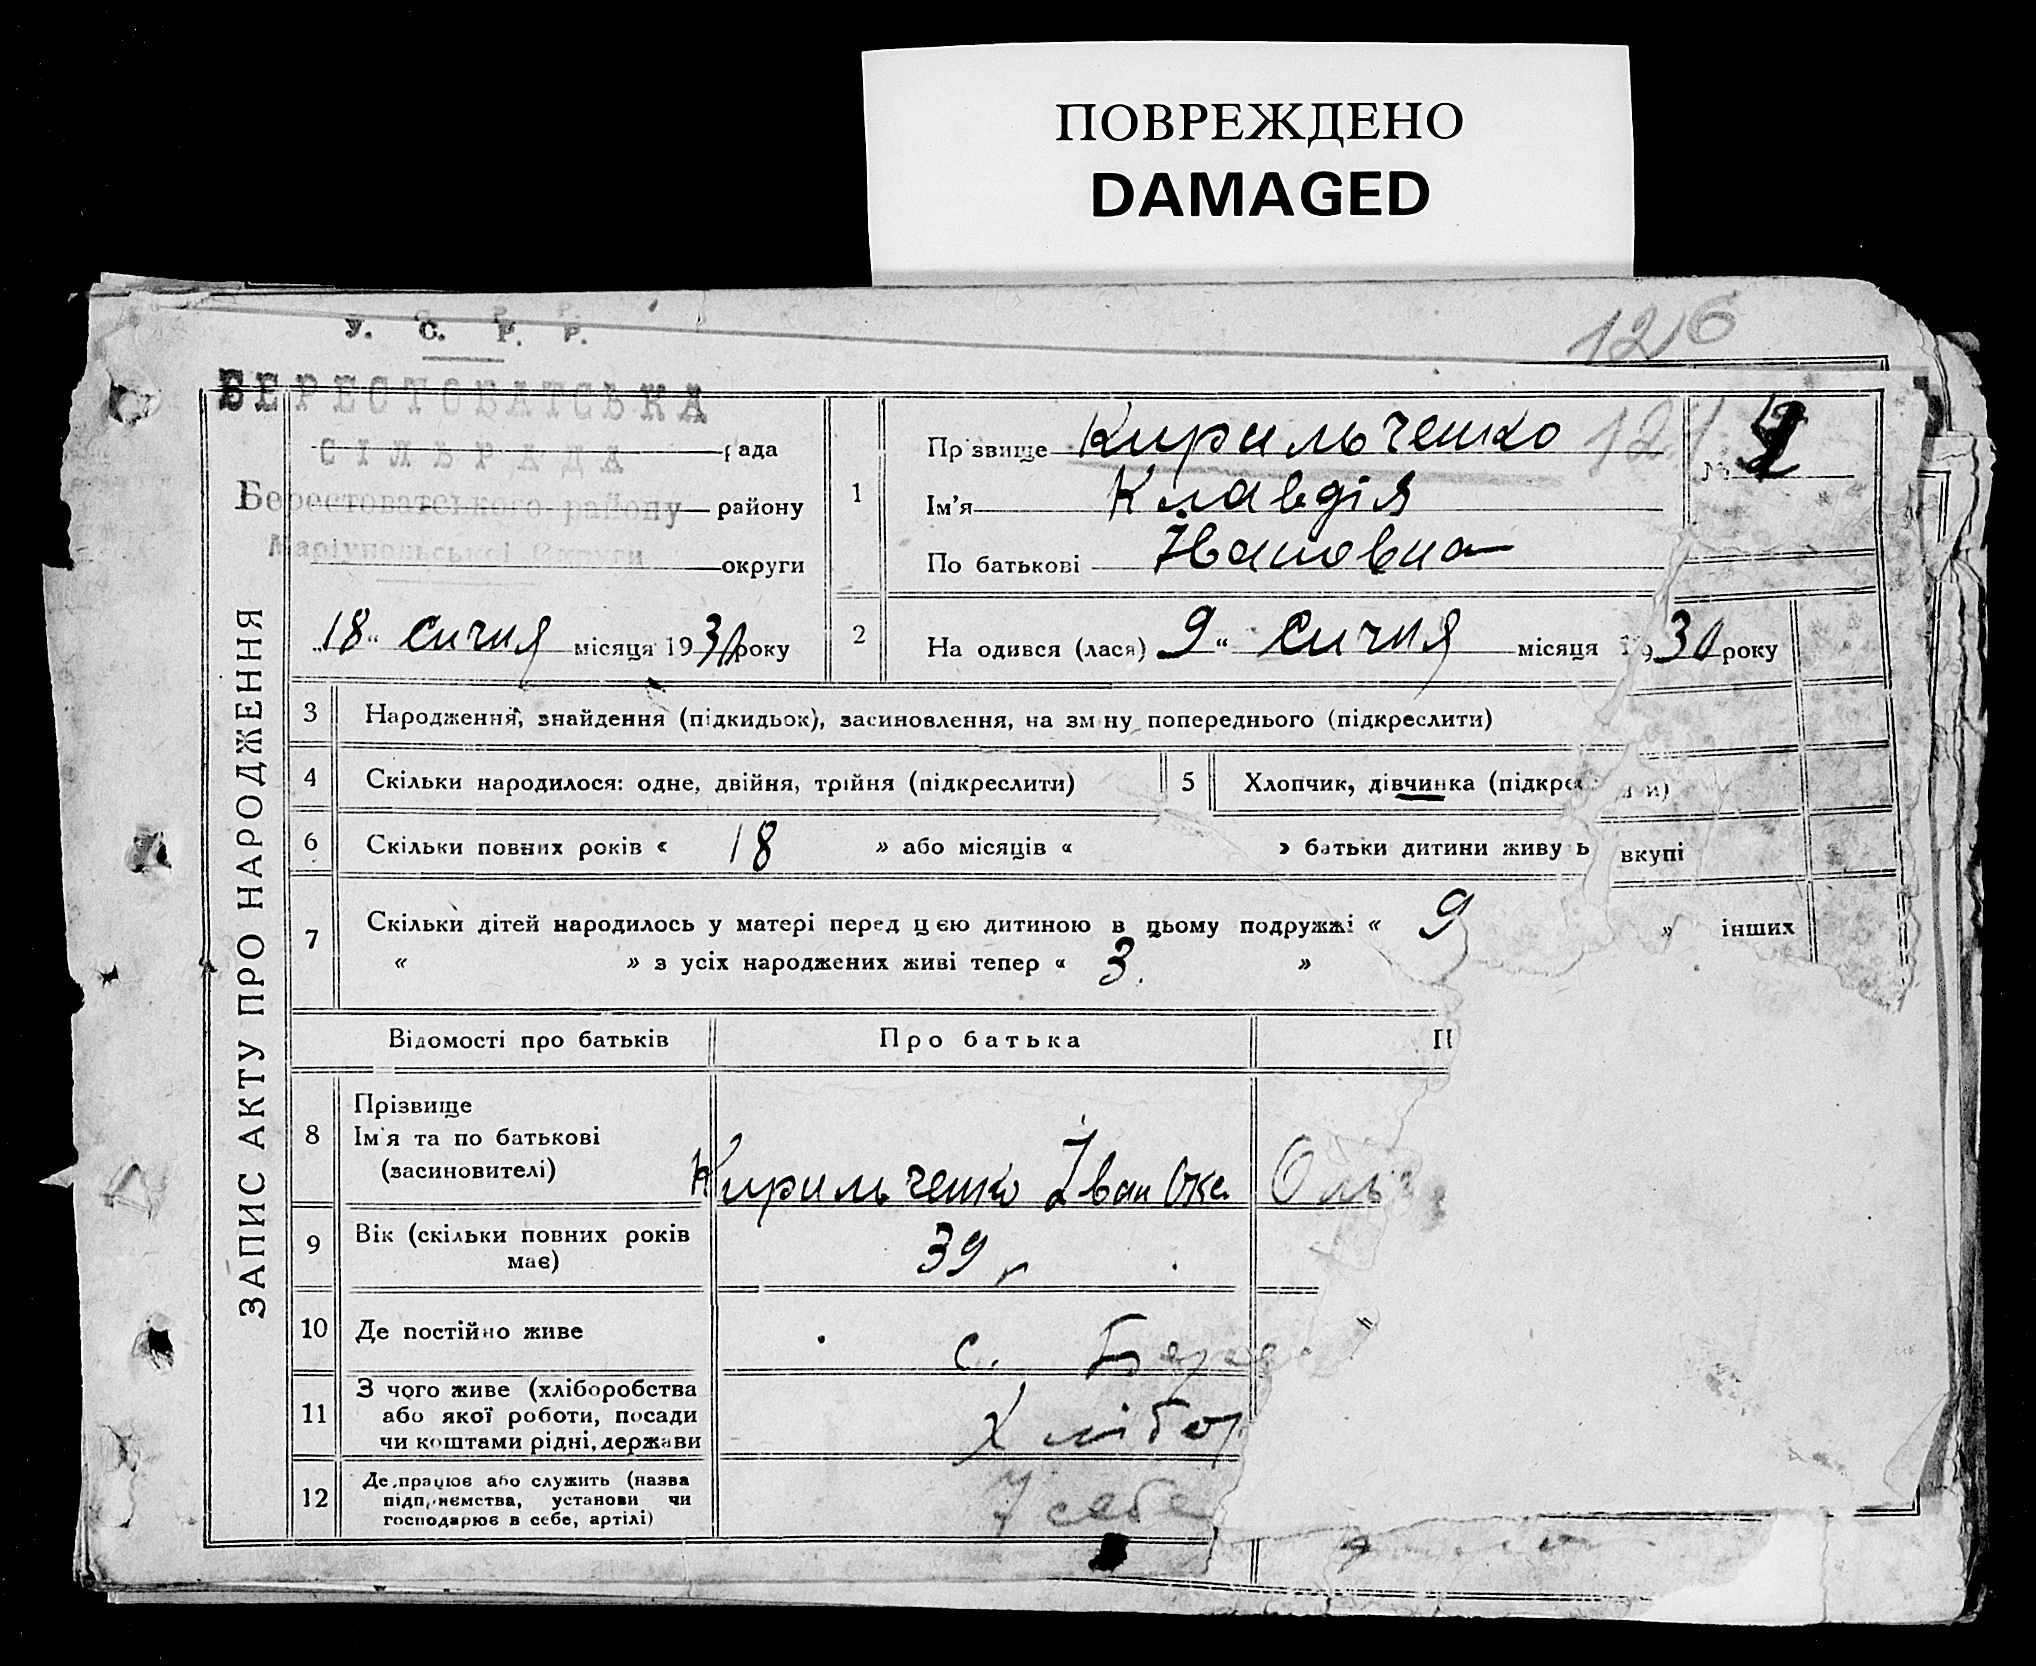 ПОВРЕЖДЕНО
DAMAGED
126
У. С. Р. Р.
БЕРЕСТОВАТСЬКА
СІЛЬРАДА рада
Берестоватського району району
Маріупольської Округи округи
„18“ січня місяця 1930 року
ЗАПИС АКТУ ПРО НАРОДЖЕННЯ
1 Прізвище Кирильченко
№ 2
Ім'я Клавдія
По батькові Івановна
2 На одився (лася) 9 “ січня місяця 1930 року
3 Народження, знайдення (підкидьок), засиновлення, на зм ну попереднього (підкреслити)
4 Скільки народилося: одне, двійня, трійня (підкреслити) 5 Хлопчик, дівчинка (підкре и)
6 Скільки повних років « 18 » або місяців « » батьки дитини живу ь вкупі
7 Скільки дітей народилось у матері перед цею дитиною в цьому подружжі « 9 » інших
« » з усіх народжених живі тепер « 3. »
Відомості про батьків Про батька П
8 Прізвище
Ім'я та по батькові
(засиновителі)
Кирильченко Іван Оке. Оль
9 Вік (скільки повних років
має)
39 г
10 Де постійно живе с. Бере
11 З чого живе (хліборобства
або якої роботи, посади
чи коштами рідні, держави
Хлібор
12 Де працює або служить (назва
підприємства, установи чи
господарює в себе, артілі)
У себе